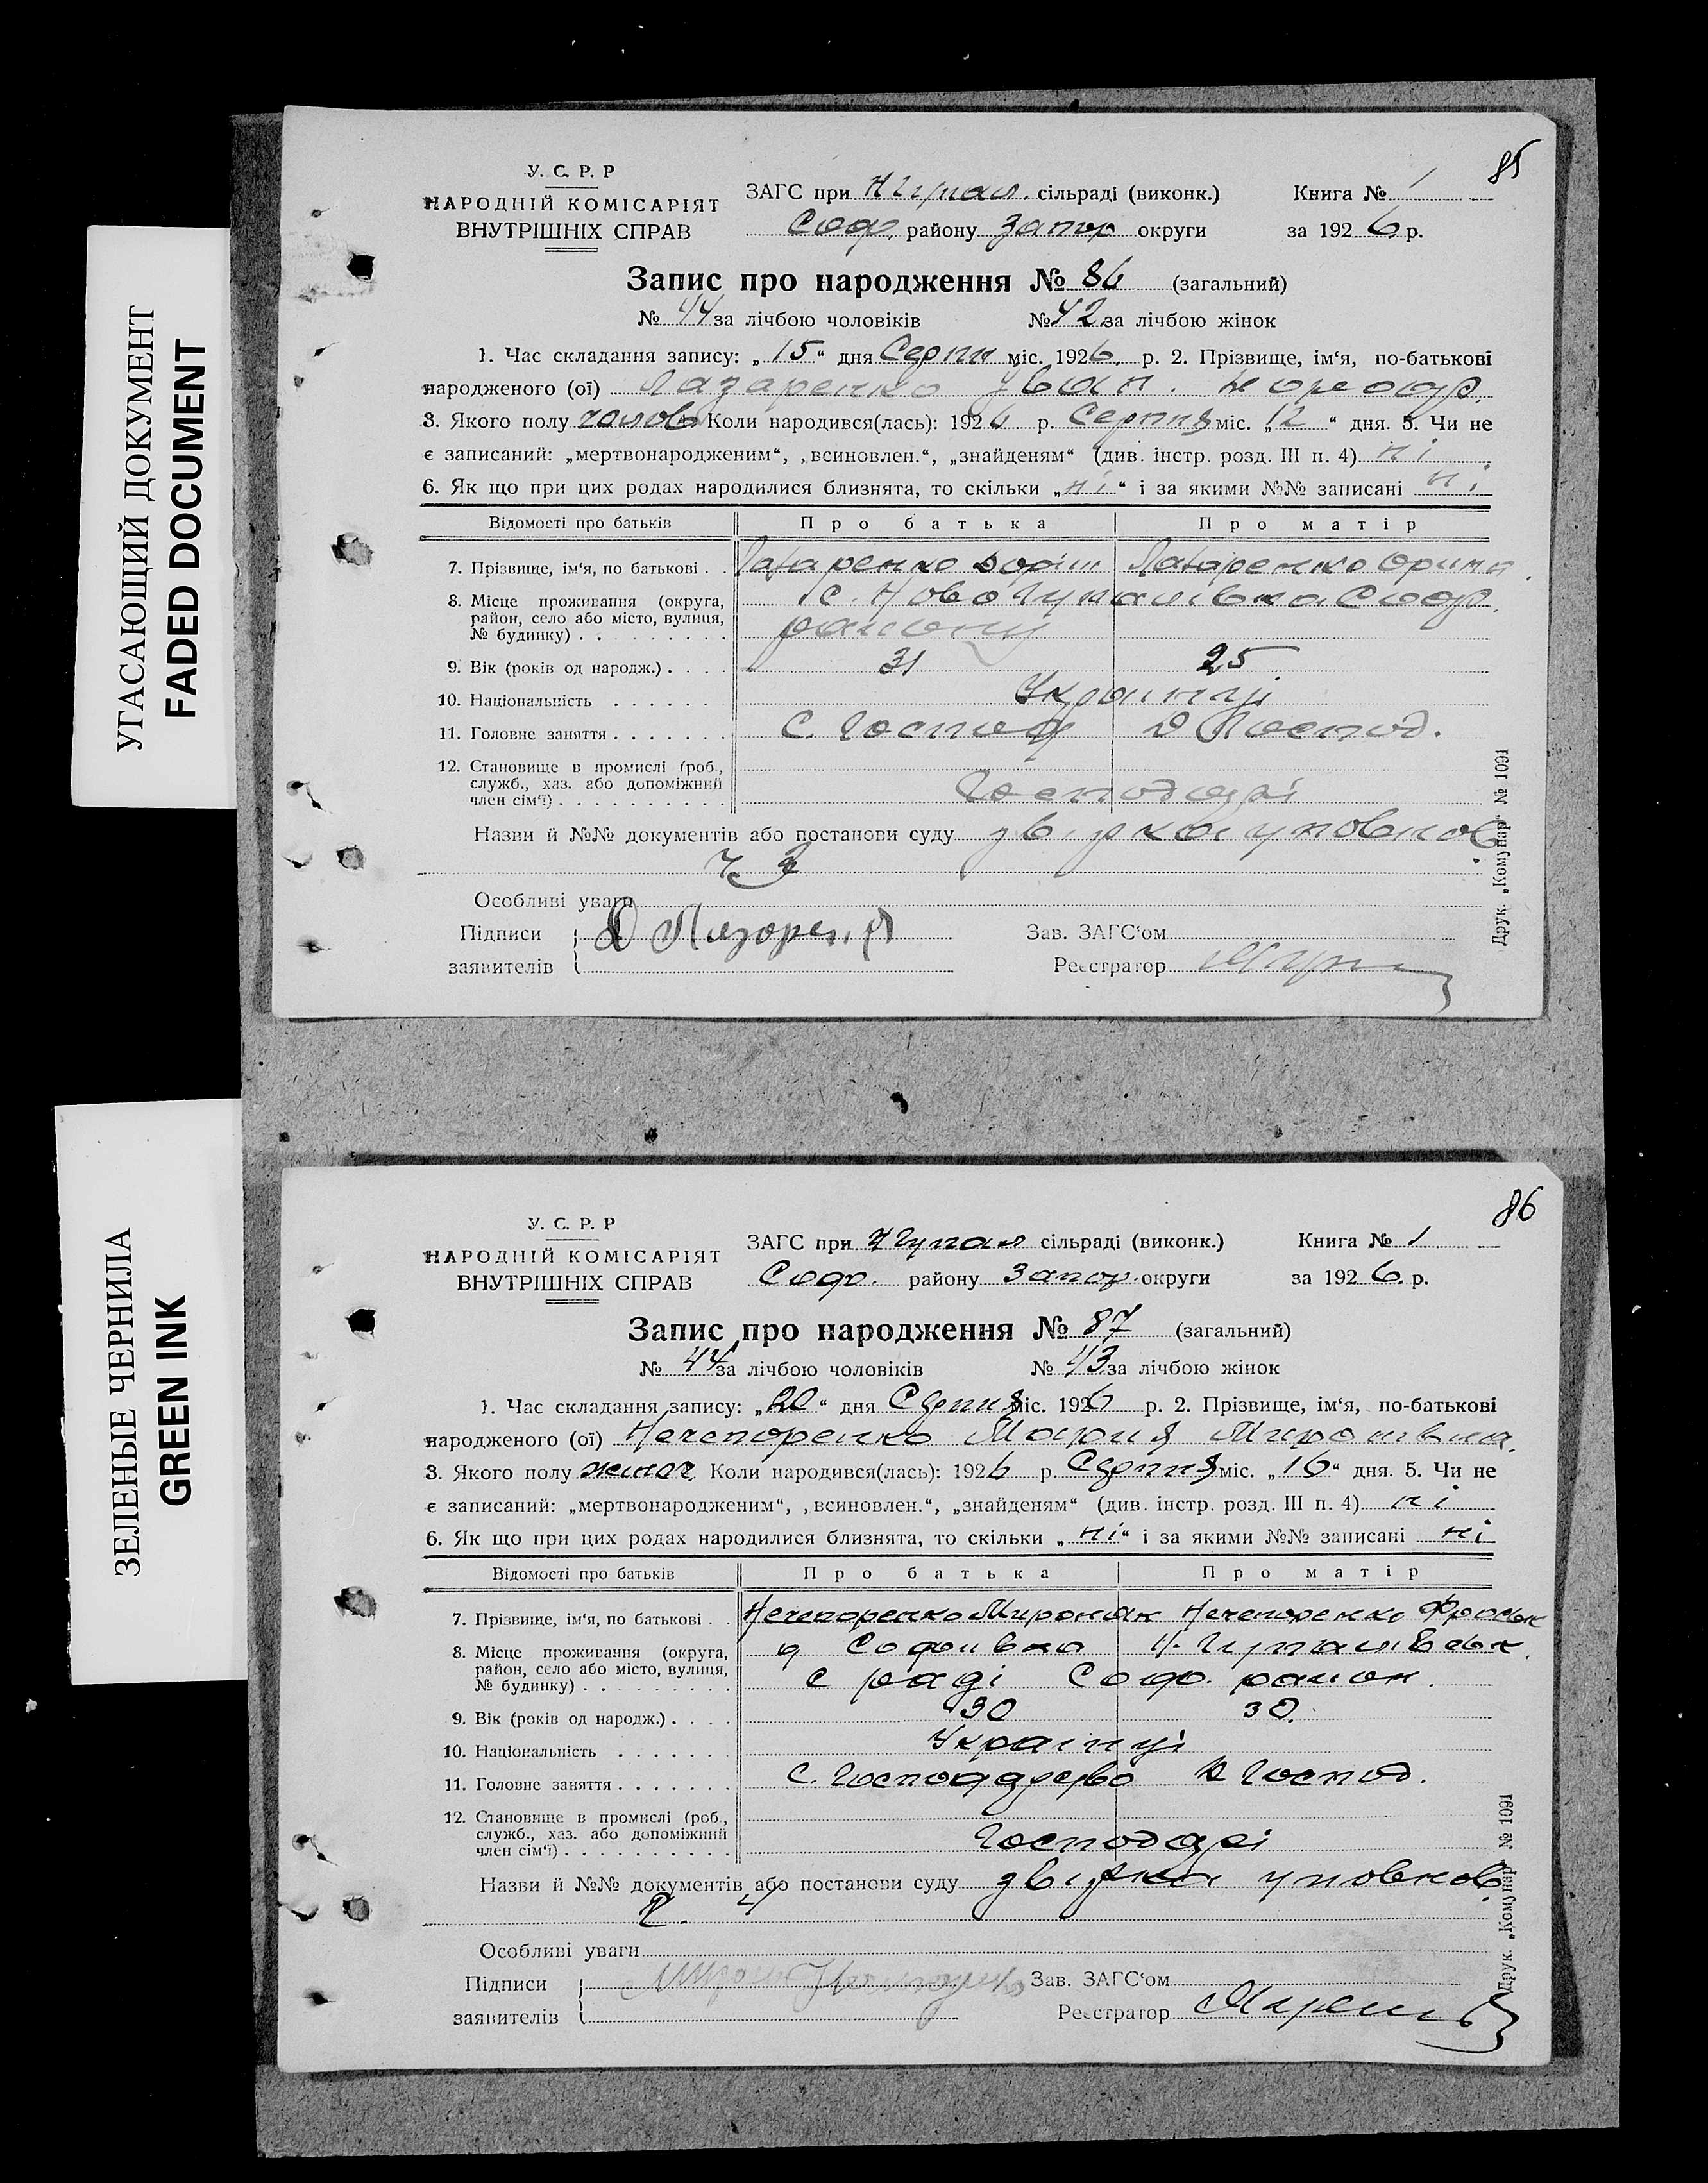 УГАСАЮЩИЙ ДОКУМЕНТ
FADED DOCUMENT
85
У. С. Р. Р
НАРОДНІЙ КОМІСАРІЯТ
ВНУТРІШНІХ СПРАВ
ЗАГС при сільраді (виконк.) Книга № 1
Соф. району Запор округи за 1926 р.
Запис про народження № 86 (загальний)
№ 44 за лічбою чоловіків № 42 за лічбою жінок
1. Час складання запису: „15“ дня Серпн міс. 1926 р. 2. Прізвище, ім‘я, по-батькові
народженого (ої) Лазаренко Іван
3. Якого полу чолов Коли народився(лась): 1926 р. Серпня міс. „12“ дня. 5. Чи не
є записаний: „мертвонародженим“, „всиновлен.“, „знайденям“ (див. інстр. розд. III п. 4) ні
6. Як що при цих родах народилися близнята, то скільки „ні“ і за якими №№ записані ні
Відомості про батьків Про батька Про матір
7. Прізвище, ім‘я, по батькові . . Лазаренко Лазаренко Орина
8. Місце проживання (округа, с. Ново Гупалівка Соф.
район, село або місто, вулиця, району
№ будинку) . . . . . . . . .
9. Вік (років од народж.) . . . . 31 25
10. Національність . . . . . . Українці
11. Головне заняття . . . . . . . С. Господ Д Господ.
12. Становище в промислі (роб.,
служб., хаз. або допоміжний Господарі
член сім‘ї) . . . . . . . . . .
Назви й №№ документів або постанови суду
ч 3
Особливі уваги
Підписи Д Лазорен Зав. ЗАГС‘ом
заявителів Реєстратор
Друк. „Комунар“ № 1091
ЗЕЛЕНЫЕ ЧЕРНИЛА
GREEN INK
86
У. С. Р. Р
НАРОДНІЙ КОМІСАРІЯТ
ВНУТРІШНІХ СПРАВ
ЗАГС при Н Гупал сільраді (виконк.) Книга № 1
Соф. району Запор. округи за 1926. р.
Запис про народження № 87 (загальний)
№ 44 за лічбою чоловіків № 43 за лічбою жінок
1. Час складання запису: „20“ дня Серпня міс. 1926 р. 2. Прізвище, ім‘я, по-батькові
народженого (ої) Нечепоренко Мария Миронівна.
3. Якого полу жіноч. Коли народився(лась): 1926 р. Серпня міс. „16“ дня. 5. Чи не
є записаний: „мертвонародженим“, „всиновлен.“, „знайденям“ (див. інстр. розд. III п. 4) ні
6. Як що при цих родах народилися близнята, то скільки „ні“ і за якими №№ записані ні
Відомості про батьків Про батька Про матір
7. Прізвище, ім‘я, по батькові . . Нечепоренко Мирон Нечепоренко
8. Місце проживання (округа, Софиівка Н. Гупалівськ.
район, село або місто, вулиця, с раді Соф. район.
№ будинку) . . . . . . . . .
9. Вік (років од народж.) . . . . 30 30.
10. Національність . . . . . . Українці
11. Головне заняття . . . . . . . С. Господарство Д Господ.
12. Становище в промислі (роб.,
служб., хаз. або допоміжний Господарі
член сім‘ї) . . . . . . . . . .
Назви й №№ документів або постанови суду
4
Особливі уваги
Підписи Мирон Зав. ЗАГС‘ом
заявителів Реєстратор
Друк. „Комунар“ № 1091